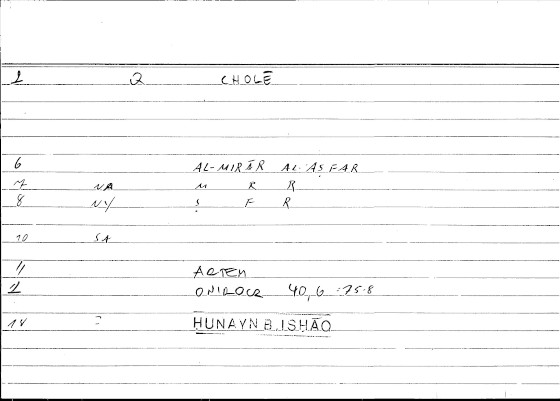 1 Q CHOLĒ
6 AL-MIRĀR AL-AṢFAR
7 NA M R R
8 NY Ṣ F R
10 SA
11 ARTEM
1 ONIROCR 40,6 = 75.8
14 = HUNAYN B. ISHĀQ